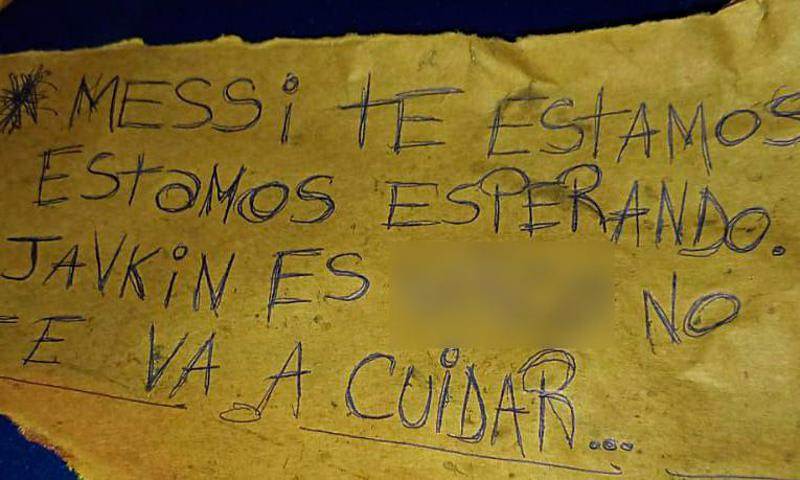 * MESSi tE EStAMOS
EStaMOS ESPERANDO.
JAVKiN ES NO
TE VA A CUiDAR...